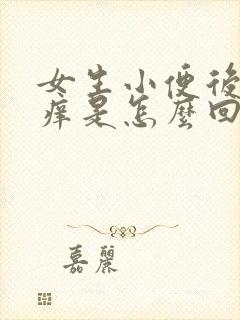 女生小便後
痒是怎麼回
嘉麗